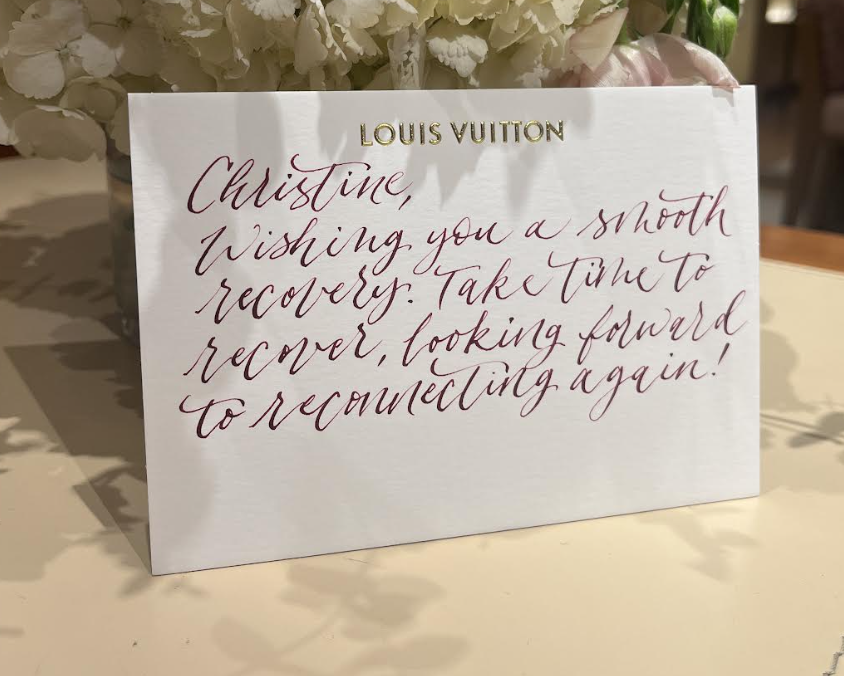 LOUIS VUITTON
Christine,
Wishing you a smooth
recovery. Take time to
recover, looking forward
to reconnecting again!